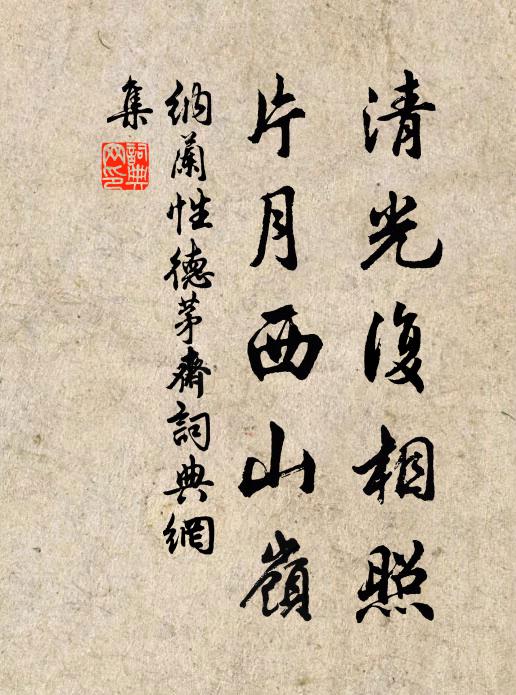 清光復相照
片月西山嶺
納蘭性德茅齋詞典網
集
詞典
網印